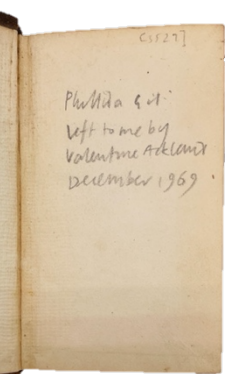 [3527]
Phyllida
left to me by
Valentine Ackland
December 1969.